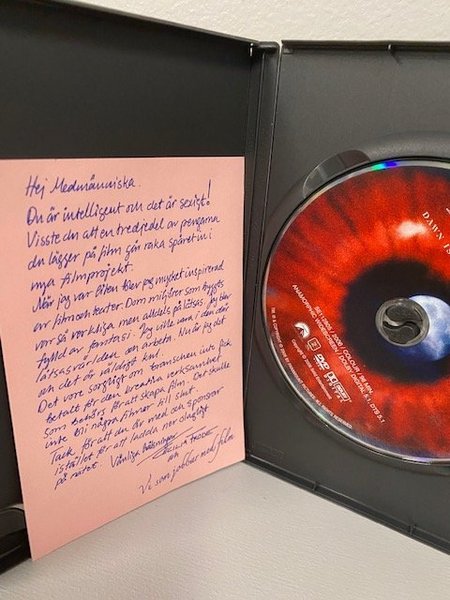 Hej Medmänniska.
Du är intelligent och det är sexigt!
Visste du att en tredjedel av pengarna
du lägger på film går raka spåret in i
nya filmprojekt.
När jag var liten blev jag mycket inspirerad
av film och teater. Dom miljöer som byggts
var så verkliga men alldels på låtsas. Jag blev
fylld av fantasi. Jag ville vara i den där
låtsasvärlden och arbeta. Nu gör jag det
och det är väldigt kul.
Det vore sorgligt om branschen inte fick
betalt för den kreativa verksamhet
som behövs för att skapa film. Det skulle
inte bli några filmer till slut.
Tack för att du är med och sponsrar
istället för att ladda ner olagligt
på nätet. Vänliga hälsningar
och
Vi som jobbar med film
DAWN IS
ANAMORPHIC WIDESCREEN / DOLBY DIGITAL 5.1, DTS 5.1
DVD